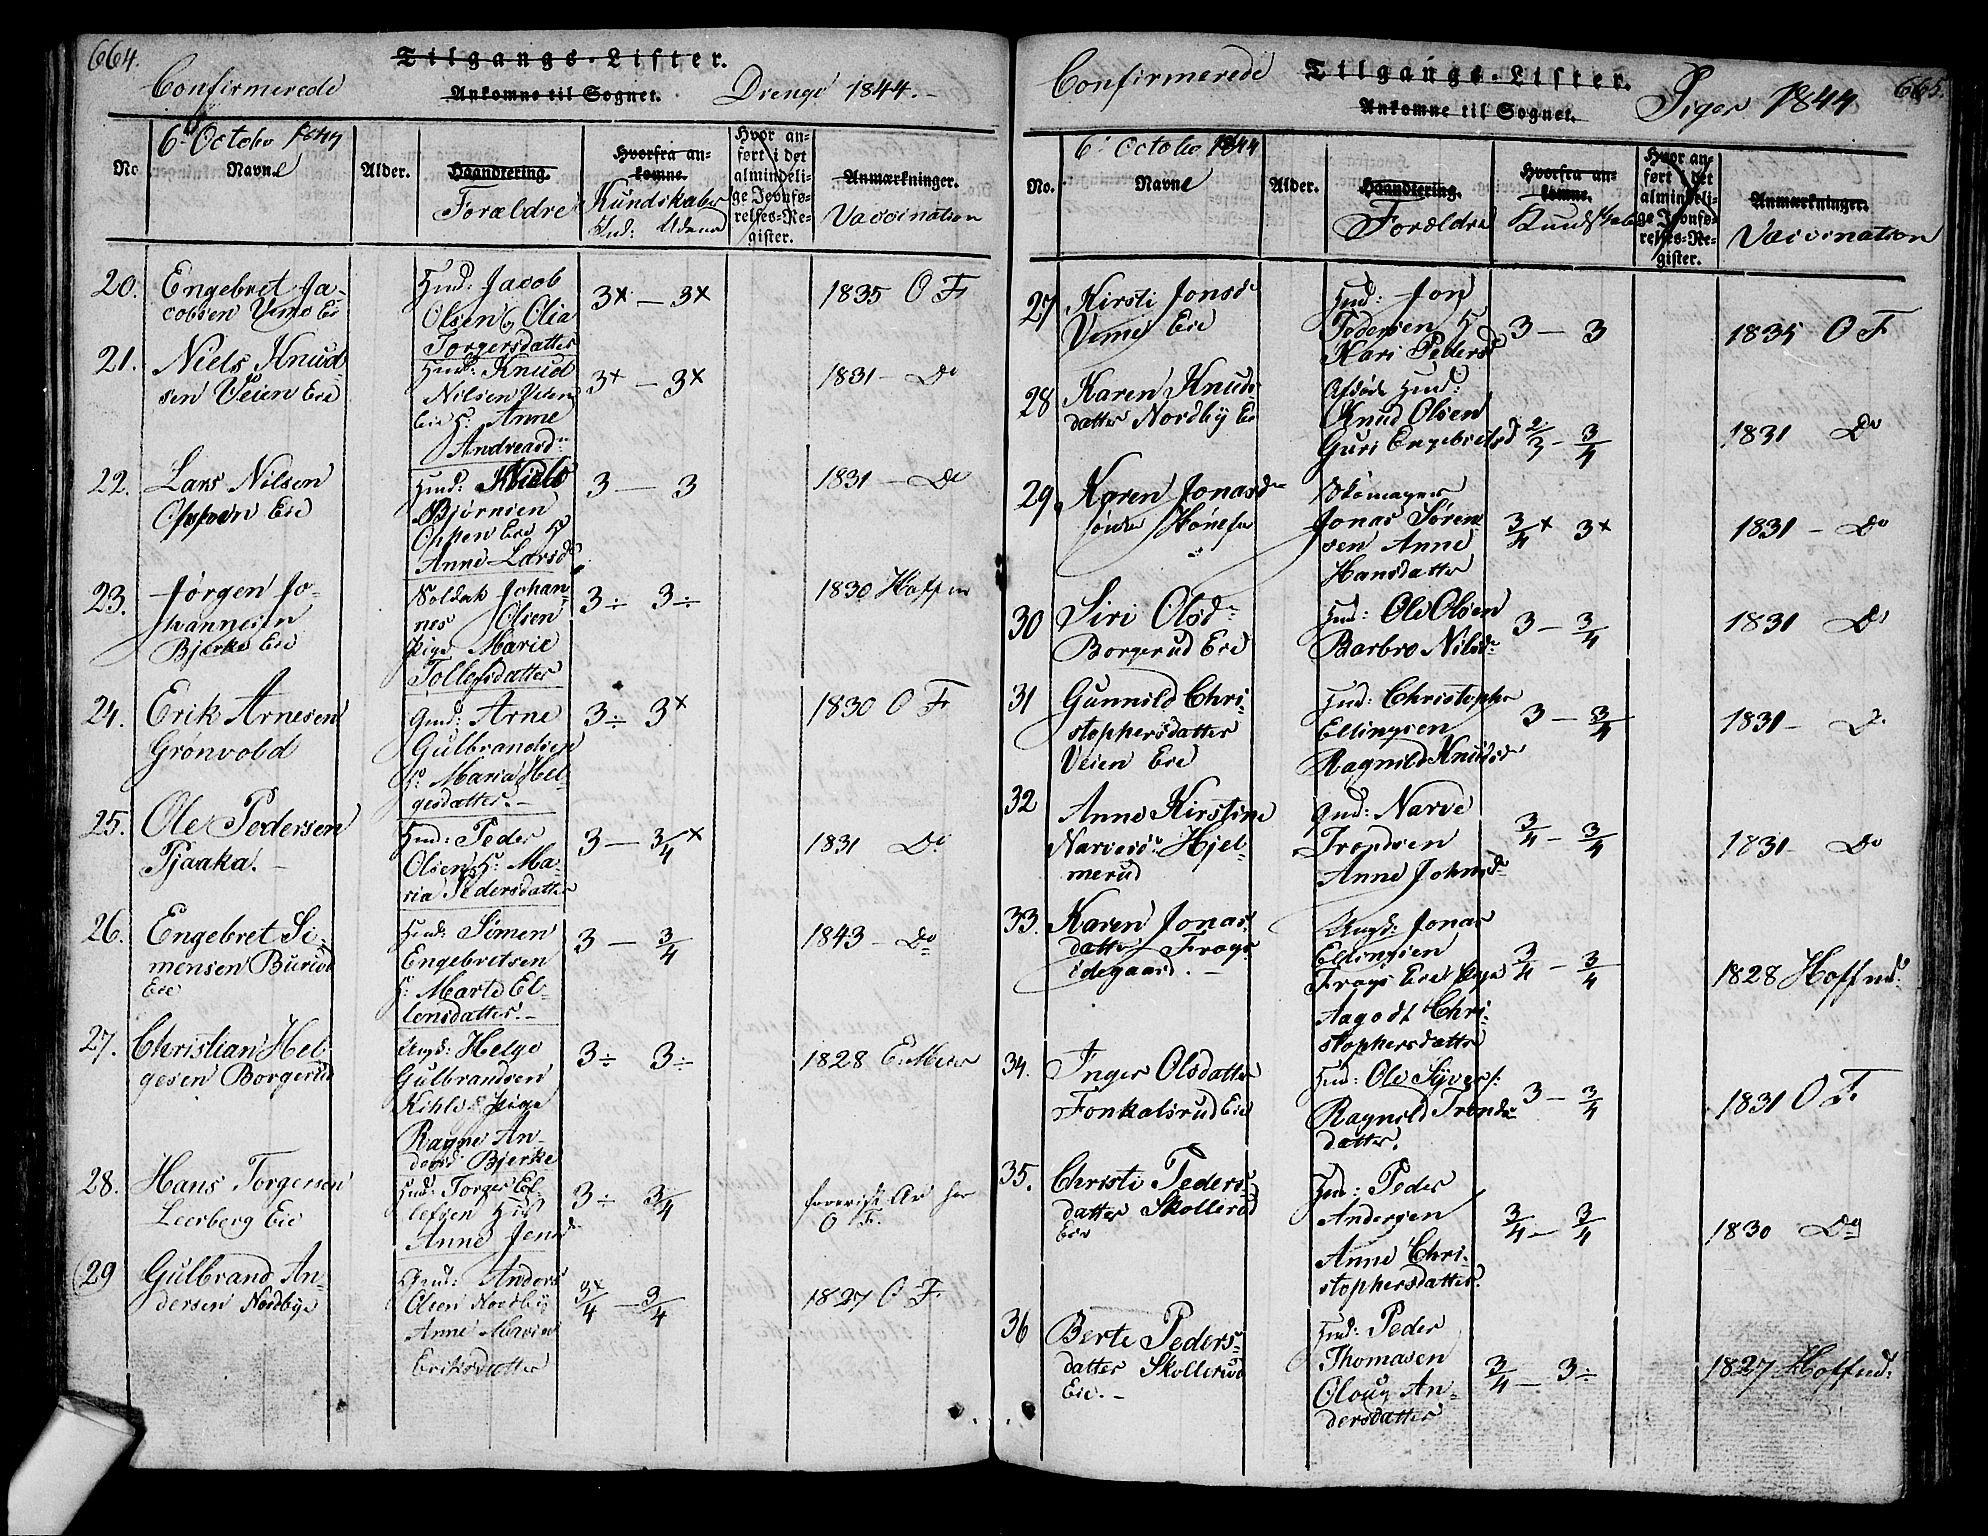 664.
Tilgangs-Lister.
Confirmerede
Ankomne til Sognet.
Drenge 1844.-
6 Octobr 1844
No
Navne
Alder.
Haandtering.
Forældre
Hvorfra an-
komne.
Kundskaber
Ind: Udenad
Hvor an-
ført i det
almindeli-
ge Jevnfø-
relses-Re-
gister.
Anmærkninger.
Vaccination
20.
Engebret Ja-
cobsen Eie
Huusd: Jacob
Olsen Olia
Torgersdatter
3x — 3x
1835 O F
21.
Niels Knud
sen Veien Eie
Knud
Nilsen Veien
Eie H: Anne
Andreasd
3x — 3x
1831 — Do
22.
Lars Nilsen
Oppen Eie
Niels
Bjørnsen
Oppen Eie H
Anne Larsd
3 — 3
1831 — Do
23.
Jørgen Jo-
hannesen
Bjerke Eie
Soldat Johan-
nes Olsen
Pige Marie
Tollefsdatter
3 ÷ 3 ÷
1830
24.
Erik Arnesen
Grønvold
Arne
Gulbrandsen
H: Maria Hel-
gesdatter.-
3 ÷ 3x
1830 O F
25.
Ole Pedersen
Tjaaka.-
Peder
Olsen H: Ma-
ria Pedersdatter
3 — 3/4x
1831 Do
26.
Engebret Si-
mensen Burud
Eie
Simen
Engebretsen
H: Marte El-
lensdatter.-
3 — 3/4
1843 — Do
27.
Christian Hel-
gesen Borgerud
Helge
Gulbrandsen
Kihle & Pige
Ragne An-
Bjerke
3 ÷ 3 ÷
1828
28.
Hans Torgersen
Leerberg Eie
Torger El-
lefsen
Anne Jensd
3 ÷ 3/4
O F.
29
Gulbrand An-
dersen Nordbye
Anders
Olsen Nordby
Anne
Eriksdatter
3x/4 — 3/4
1827 O F
665.
Tilgangs-Lister.
Confirmerede
Ankomne til Sognet.
Piger 1844
6 Octobr 1844
No.
Navne
Alder.
Haandtering.
Forældre
Hvorfra an-
komne.
Kundskab
Hvor an-
ført i det
almindeli-
ge Jevnfø-
relses-Re-
gister.
Anmærkninger.
Vaccination
27
Kirsti Jonsd
Eie
Jon
Pedersen H
Kari Pedersd
3 — 3
1835 O F
28
Karen Knuds
datter Nordby Eie
Knud Olsen
Guri Engebretsd
2/3 — 3/4
1831 Do
29
Karen Jonasd
Jonas Søren
sen Anne
Hansdatter
3/4x 3x
1831 — Do
30
Siri Olsd
Borgerud Eie
Ole Olsen
Barbro Nilsd
3 — 3/4
1831 Do
31
Gunnild Chri-
stophersdatter
Veien Eie
Christopher
Ellingsen
Ragnild Knudsd
3 — 3/4
1831 —
32
Anne Kirstine
Hjel-
merud
Narve
Trondsen
Anne Johnsd
3/4 — 3/4
1831 — Do
33.
Karen Jonas
datter Frogs
ødegaard.-
Jonas
Ellingsen
Frogs Eie Pige
Aagodt Chri-
stophersdatter
3/4 — 3/4
1828
34.
Inger Olsdatter
Fonkalsrud Eie
Ole Syvers:
Ragnild Tronds
datter.
3 — 3/4
1831 O F.
35.
Christi Peders
datter Skollerud
Eie
Peder
Andersen
Anne Chri-
stophersdatter.
3/4 — 3/4
1830 Do
36
Berte Peders-
datter Skollerud
Eie.-
Peder
Thomasen
Oloug An-
dersdatter
3/4 — 3 ÷
1827